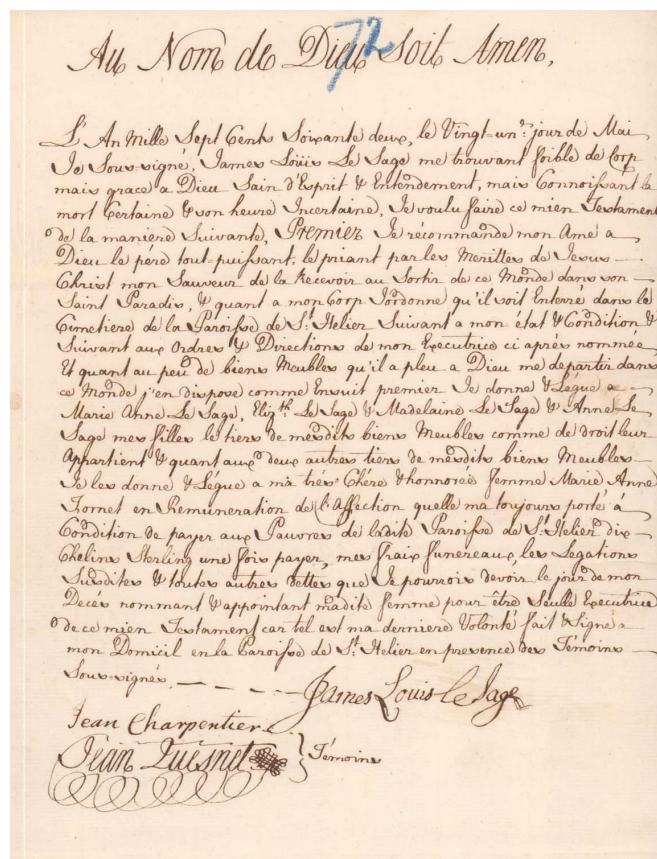 72
Au Nom de Dieu Soit Amen,
L'An Mille Sept Cents Soixante deux, le Vingt-un.e jour de Mai
Je Sous-signé, James Loüis Le Sage me trouvant foible de Corp
mais grace a Dieu Sain d'Esprit & Entendement, mais Connoissant la
mort Certaine & son heure Incertaine, Je voulu faire ce mien Testament
de la maniere Suivante, Premier Je recommande mon Ame a
Dieu le pere tout puissant, le priant par les Merittes de Jesus
Christ mon Sauveur de la Recevoir au Sortir de ce Monde dans son
Saint Paradis, & quant a mon Corp Jordonne qu'il soit Enterré dans le
Cimetiere de la Paroisse de St. Helier Suivant a mon état & Condition &
Suivant aux Ordres & Directions de mon Executrice ci aprés nommée,
Et quant au peu de biens Meubles qu'il a pleu a Dieu me departir dans
ce Monde j'en dispose comme Ensuit premier Je donne & Légue a
Marie Anne Le Sage, Eliz.th Le Sage & Madelaine Le Sage & Anne Le
Sage mes filles le tiers de mesdits biens Meubles comme de droit leur
Appartient & quant aux deux autres tiers de mesdits biens Meubles
Je les donne & Légue a ma trés Chére & honnorée femme Marie Anne
Fornet en Remuneration de l'Affection quelle ma toujours porté à
Condition de payer aux Pauvres de ladite Paroisse de St. Helier dix
Chelins Sterling une fois payer, mes fraix funereaux, les Legations
Susdites & toutes autres dettes que Je pourrois devoir le jour de mon
Decés nommant & appointant madite femme pour être Seulle Executrice
de ce mien Testament car tel est ma derniere Volonté fait & Signé a
mon Domicil en la Paroisse de St. Helier en presence des Témoins
Sous-signés,
James Louis le Sage
Jean Charpentier
Jean Quesnel
Témoins